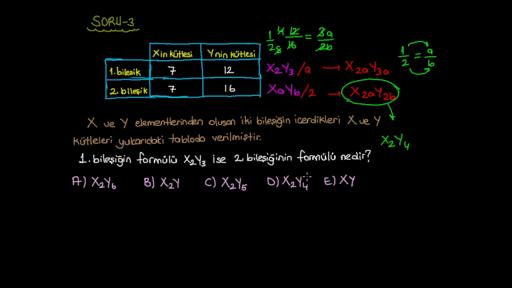 SORU-3
X in kütlesi Y nin kütlesi
1. bileşik 7 12
2. bileşik 7 16
12/16 = 3a/2b
X2Y3/a → X2aY3a
XaYb/2 → X2aY2b
1/2 = a/b
X2Y4
X ve Y elementlerinden oluşan iki bileşiğin içerdikleri X ve Y
kütleleri yukarıdaki tabloda verilmiştir.
1. bileşiğin formülü X2Y3 ise 2. bileşiğinin formülü nedir?
A) X2Y6 B) X2Y C) X2Y5 D) X2Y4 E) XY